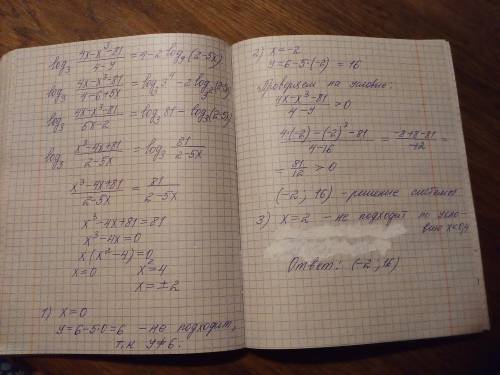 log₃ (4x-x³-81)/(4-y) = 4-2 log₉(2-5x)
log₃ (4x-x³-81)/(4-6+5x) = log₃3⁴ - 2log₃²(2-5x)
log₃ (4x-x³-81)/(5x-2) = log₃81 - log₃(2-5x)
log₃ (x³-4x+81)/(2-5x) = log₃ 81/(2-5x)
(x³-4x+81)/(2-5x) = 81/(2-5x)
x³-4x+81=81
x³-4x=0
x(x²-4)=0
x=0 x²=4
x=±2
1) x=0
y=6-5·0=6 - не подходит,
т.к y≠6.
2) x=-2
y=6-5·(-2)=16
Проверяем на условие:
(4x-x³-81)/(4-y) >0
(4·(-2)-(-2)³-81)/(4-16) = (-8+8-81)/(-12) =
= 81/12 >0
(-2; 16) - решение системы
3) x=2 - не подходит по усло-
вию x<0,4
Ответ: (-2; 16)